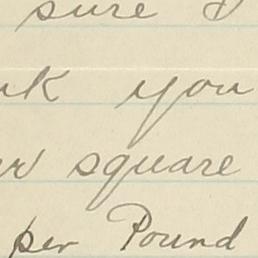 sure I
you
square
per Pound